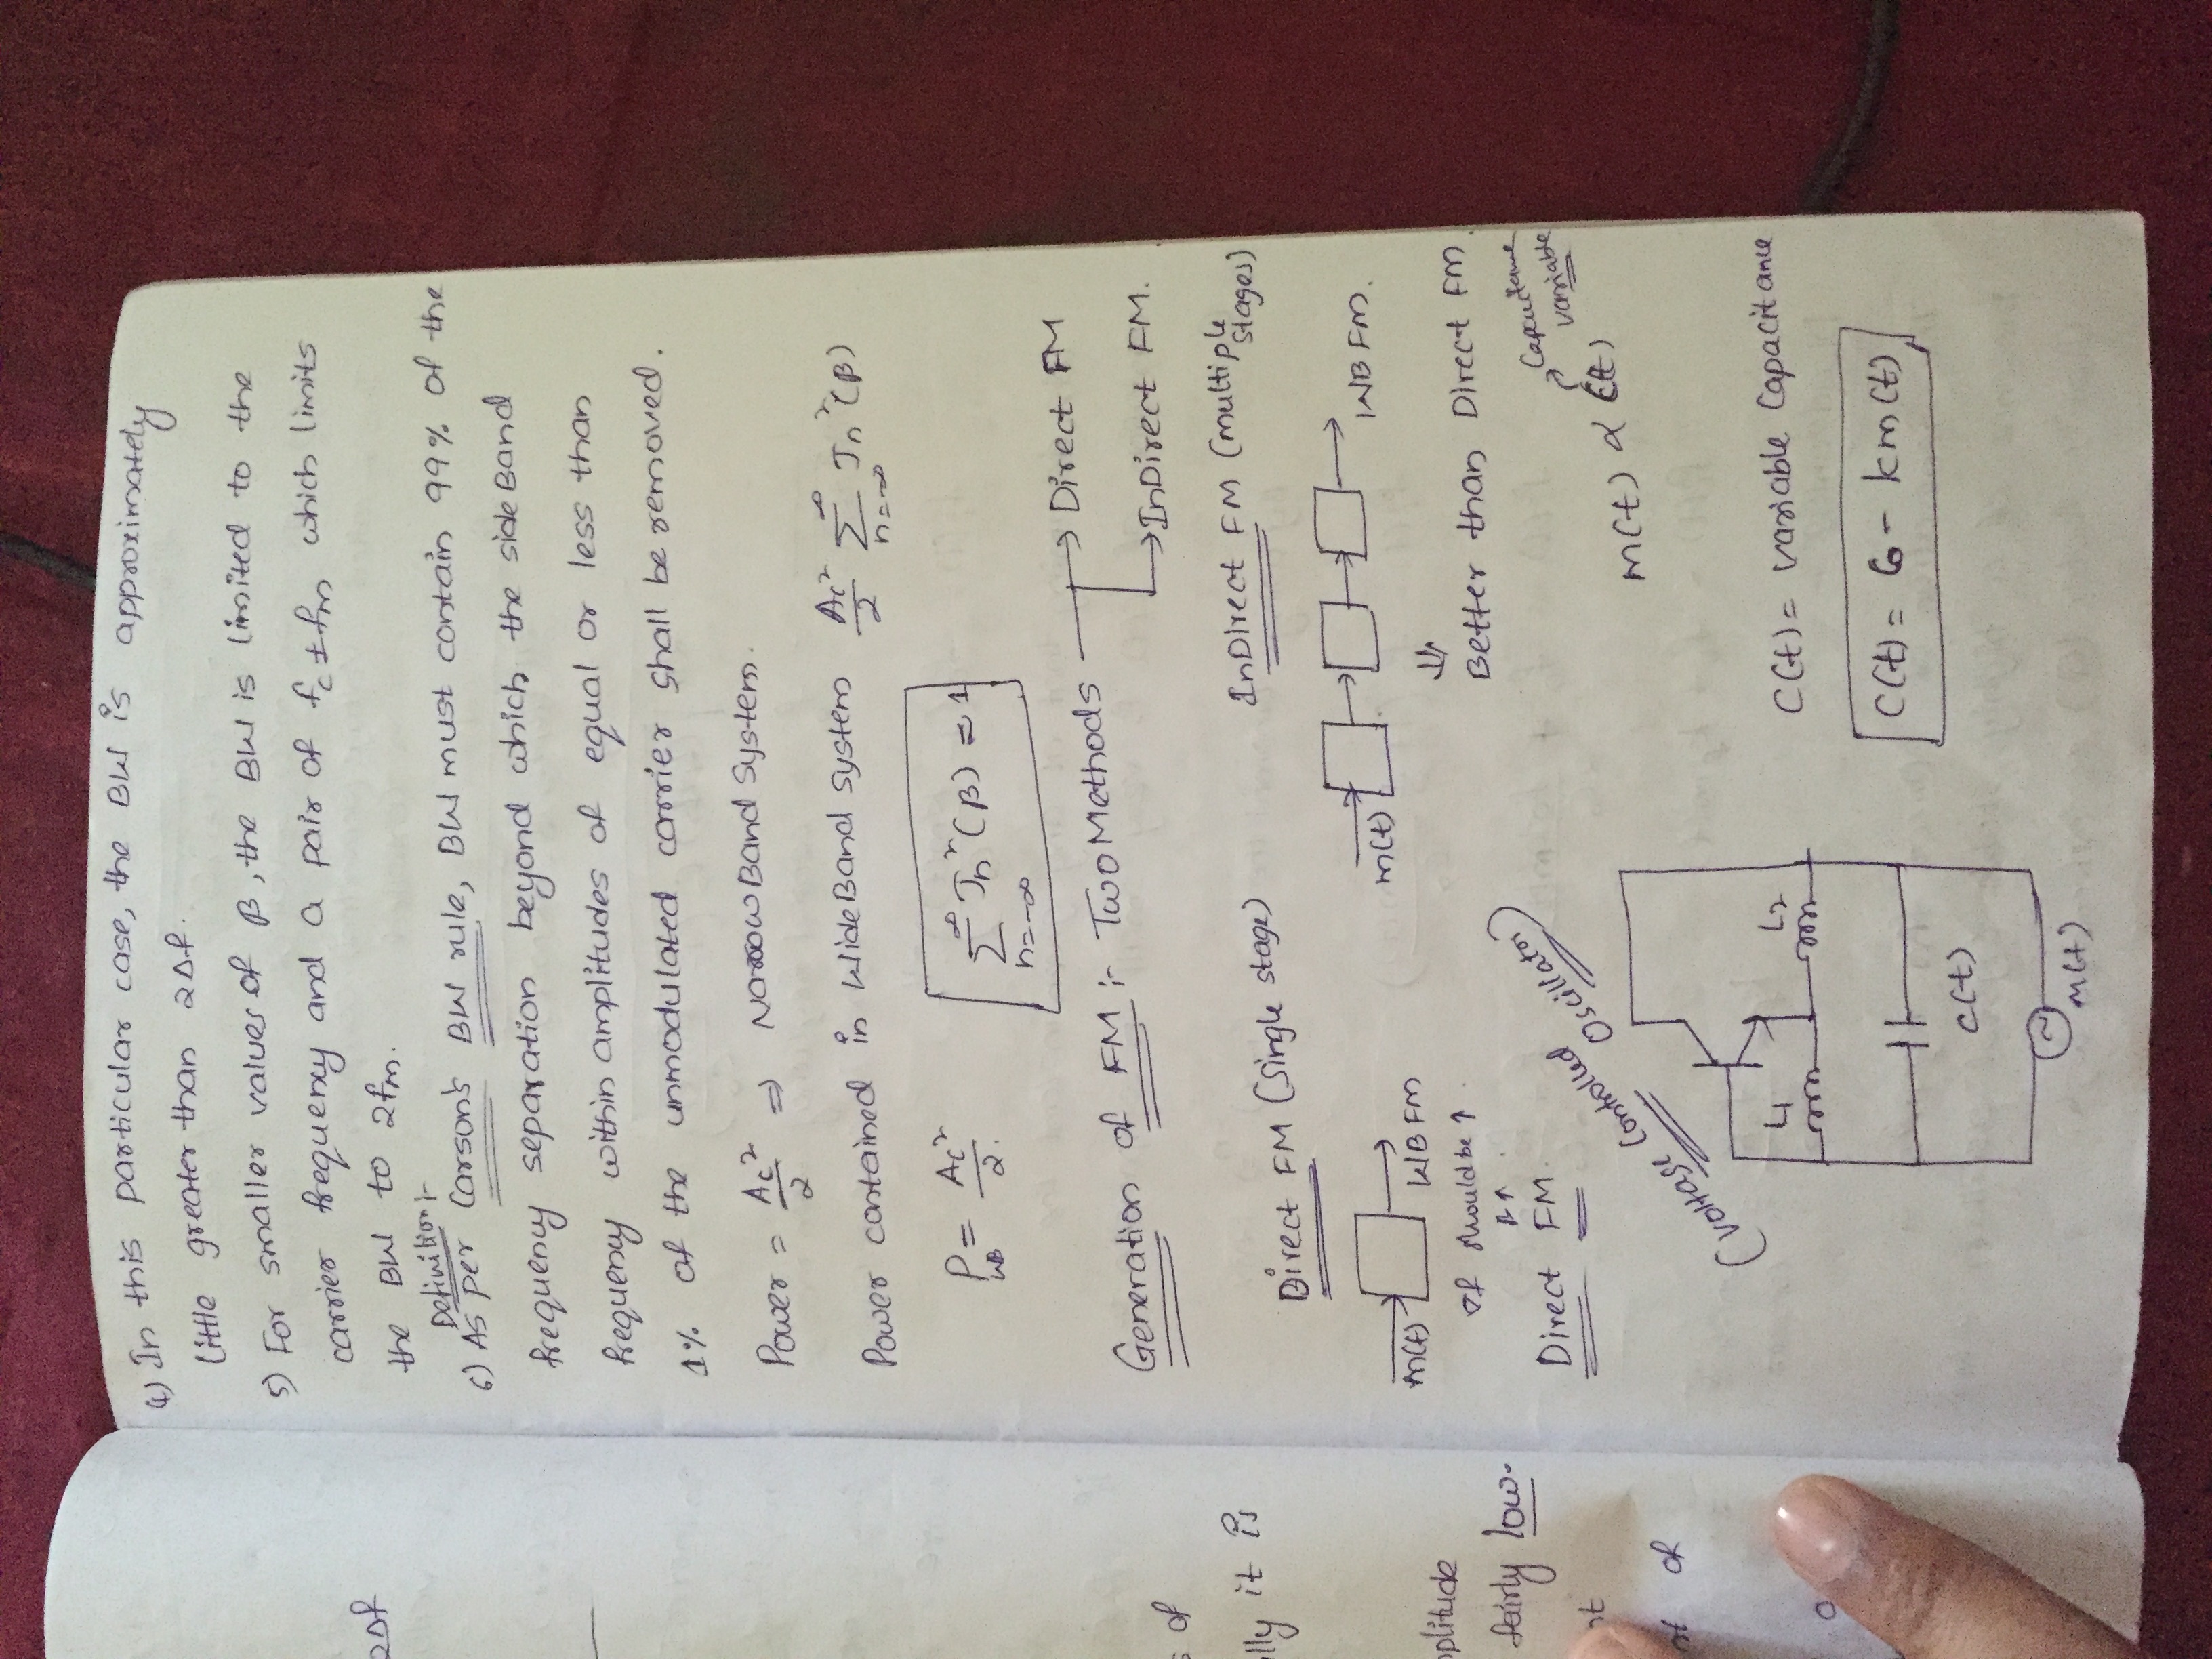 4) In this particular case, the BW is approximately
little greater than 2Δf.
5) For smaller values of β, the BW is limited to the
carrier frequency and a pair of fc±fm which limits
the BW to 2fm.
Definition:-
6) As per Carson's BW rule, BW must contain 99% of the
frequency separation beyond which the side Band
frequency within amplitudes of equal or less than
1% of the unmodulated carrier shall be removed.
Power = Ac²/2 ⇒ Narrow Band System.
Power contained in Wide Band system Ac²/2 ∑ n=-∞ ∞ Jn²(β)
P WB = Ac²/2.
∑ n=-∞ ∞ Jn²(β) = 1
Generation of FM :- Two Methods → Direct FM
→ InDirect FM.
Direct FM (Single stage)
InDirect FM (multiple stages)
m(t) → WB FM
m(t) → WB FM.
Δf should be ↑
β↑
⇓
Better than Direct FM.
Direct FM.
(Voltage Controlled Oscillator)
Capacitance
variable
m(t) ∝ C(t)
L1 L2
C(t)
m(t)
C(t) = variable Capacitance
C(t) = C0 - km(t)
2Δf
s of
lly it is
plitude
fairly low.
nt
of